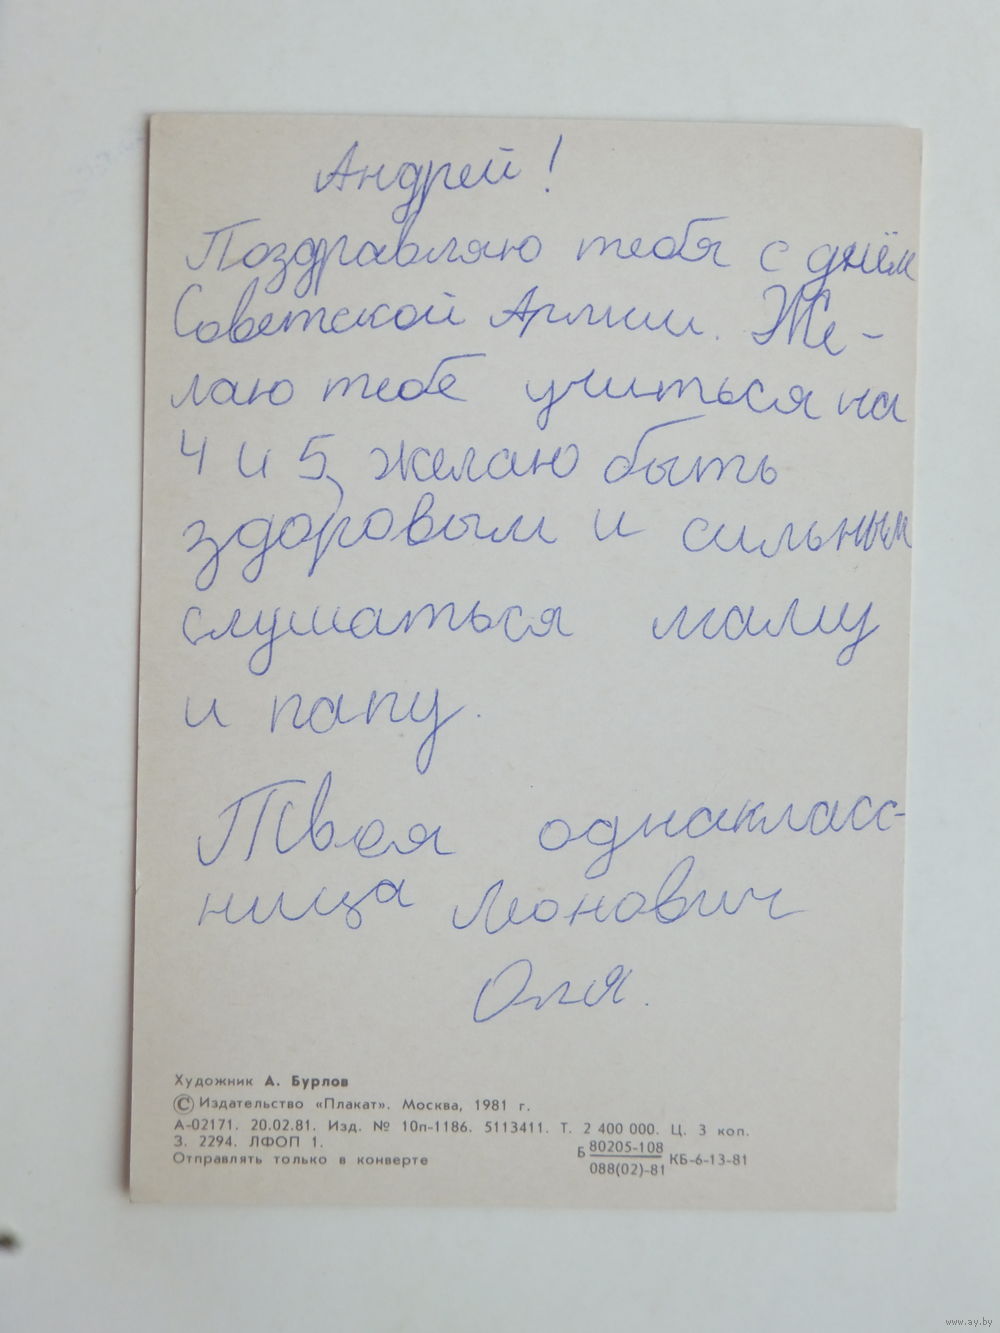 Андрей!
Поздравляю тебя с днём
Советской Армии. Же-
лаю тебе учиться на
4 и 5, желаю быть
здоровым и сильным
слушаться маму
и папу.
Твоя однакласс-
ница Леонович
Оля.
Художник А. Бурлов
© Издательство «Плакат». Москва, 1981 г.
А-02171. 20.02.81. Изд. № 10п-1186. 5113411. Т. 2 400 000. Ц. 3 коп.
З. 2294. ЛФОП 1.
Отправлять только в конверте
Б 80205-108 КБ-6-13-81
088(02)-81
www.ay.by